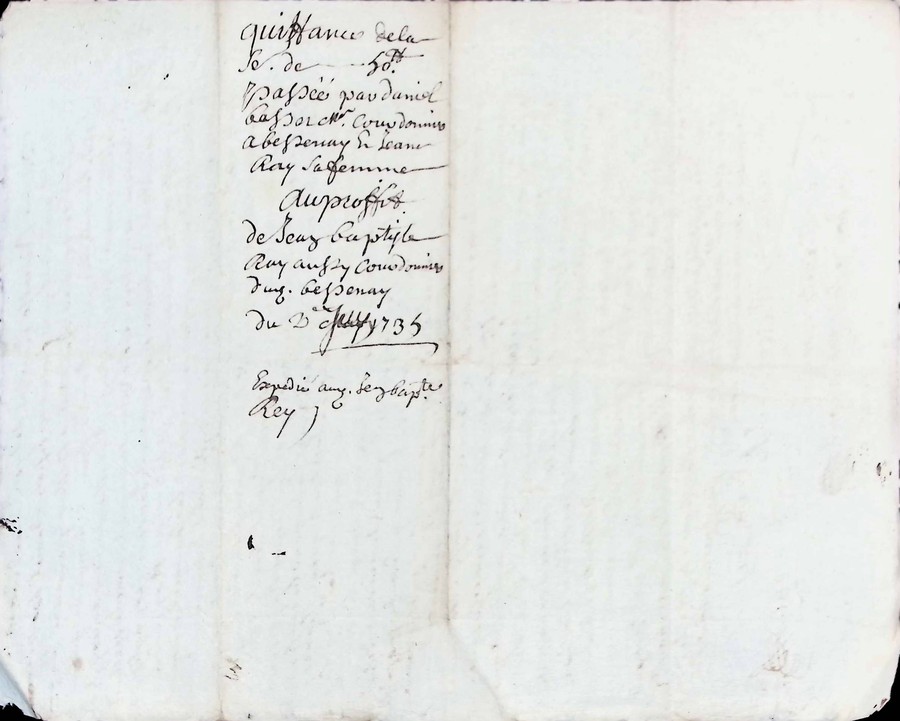 quittance dela
Se. de 50 tt
passéé par daniel
basset Me. Courdonnier
a bessenay Et Jeane
Ray Sa femme
Au proffit
de Jean baptiste
Ray aussy Courdonnier
dud. bessenay
du 2e 1735
Expedié aud. Jean bapte
Rey